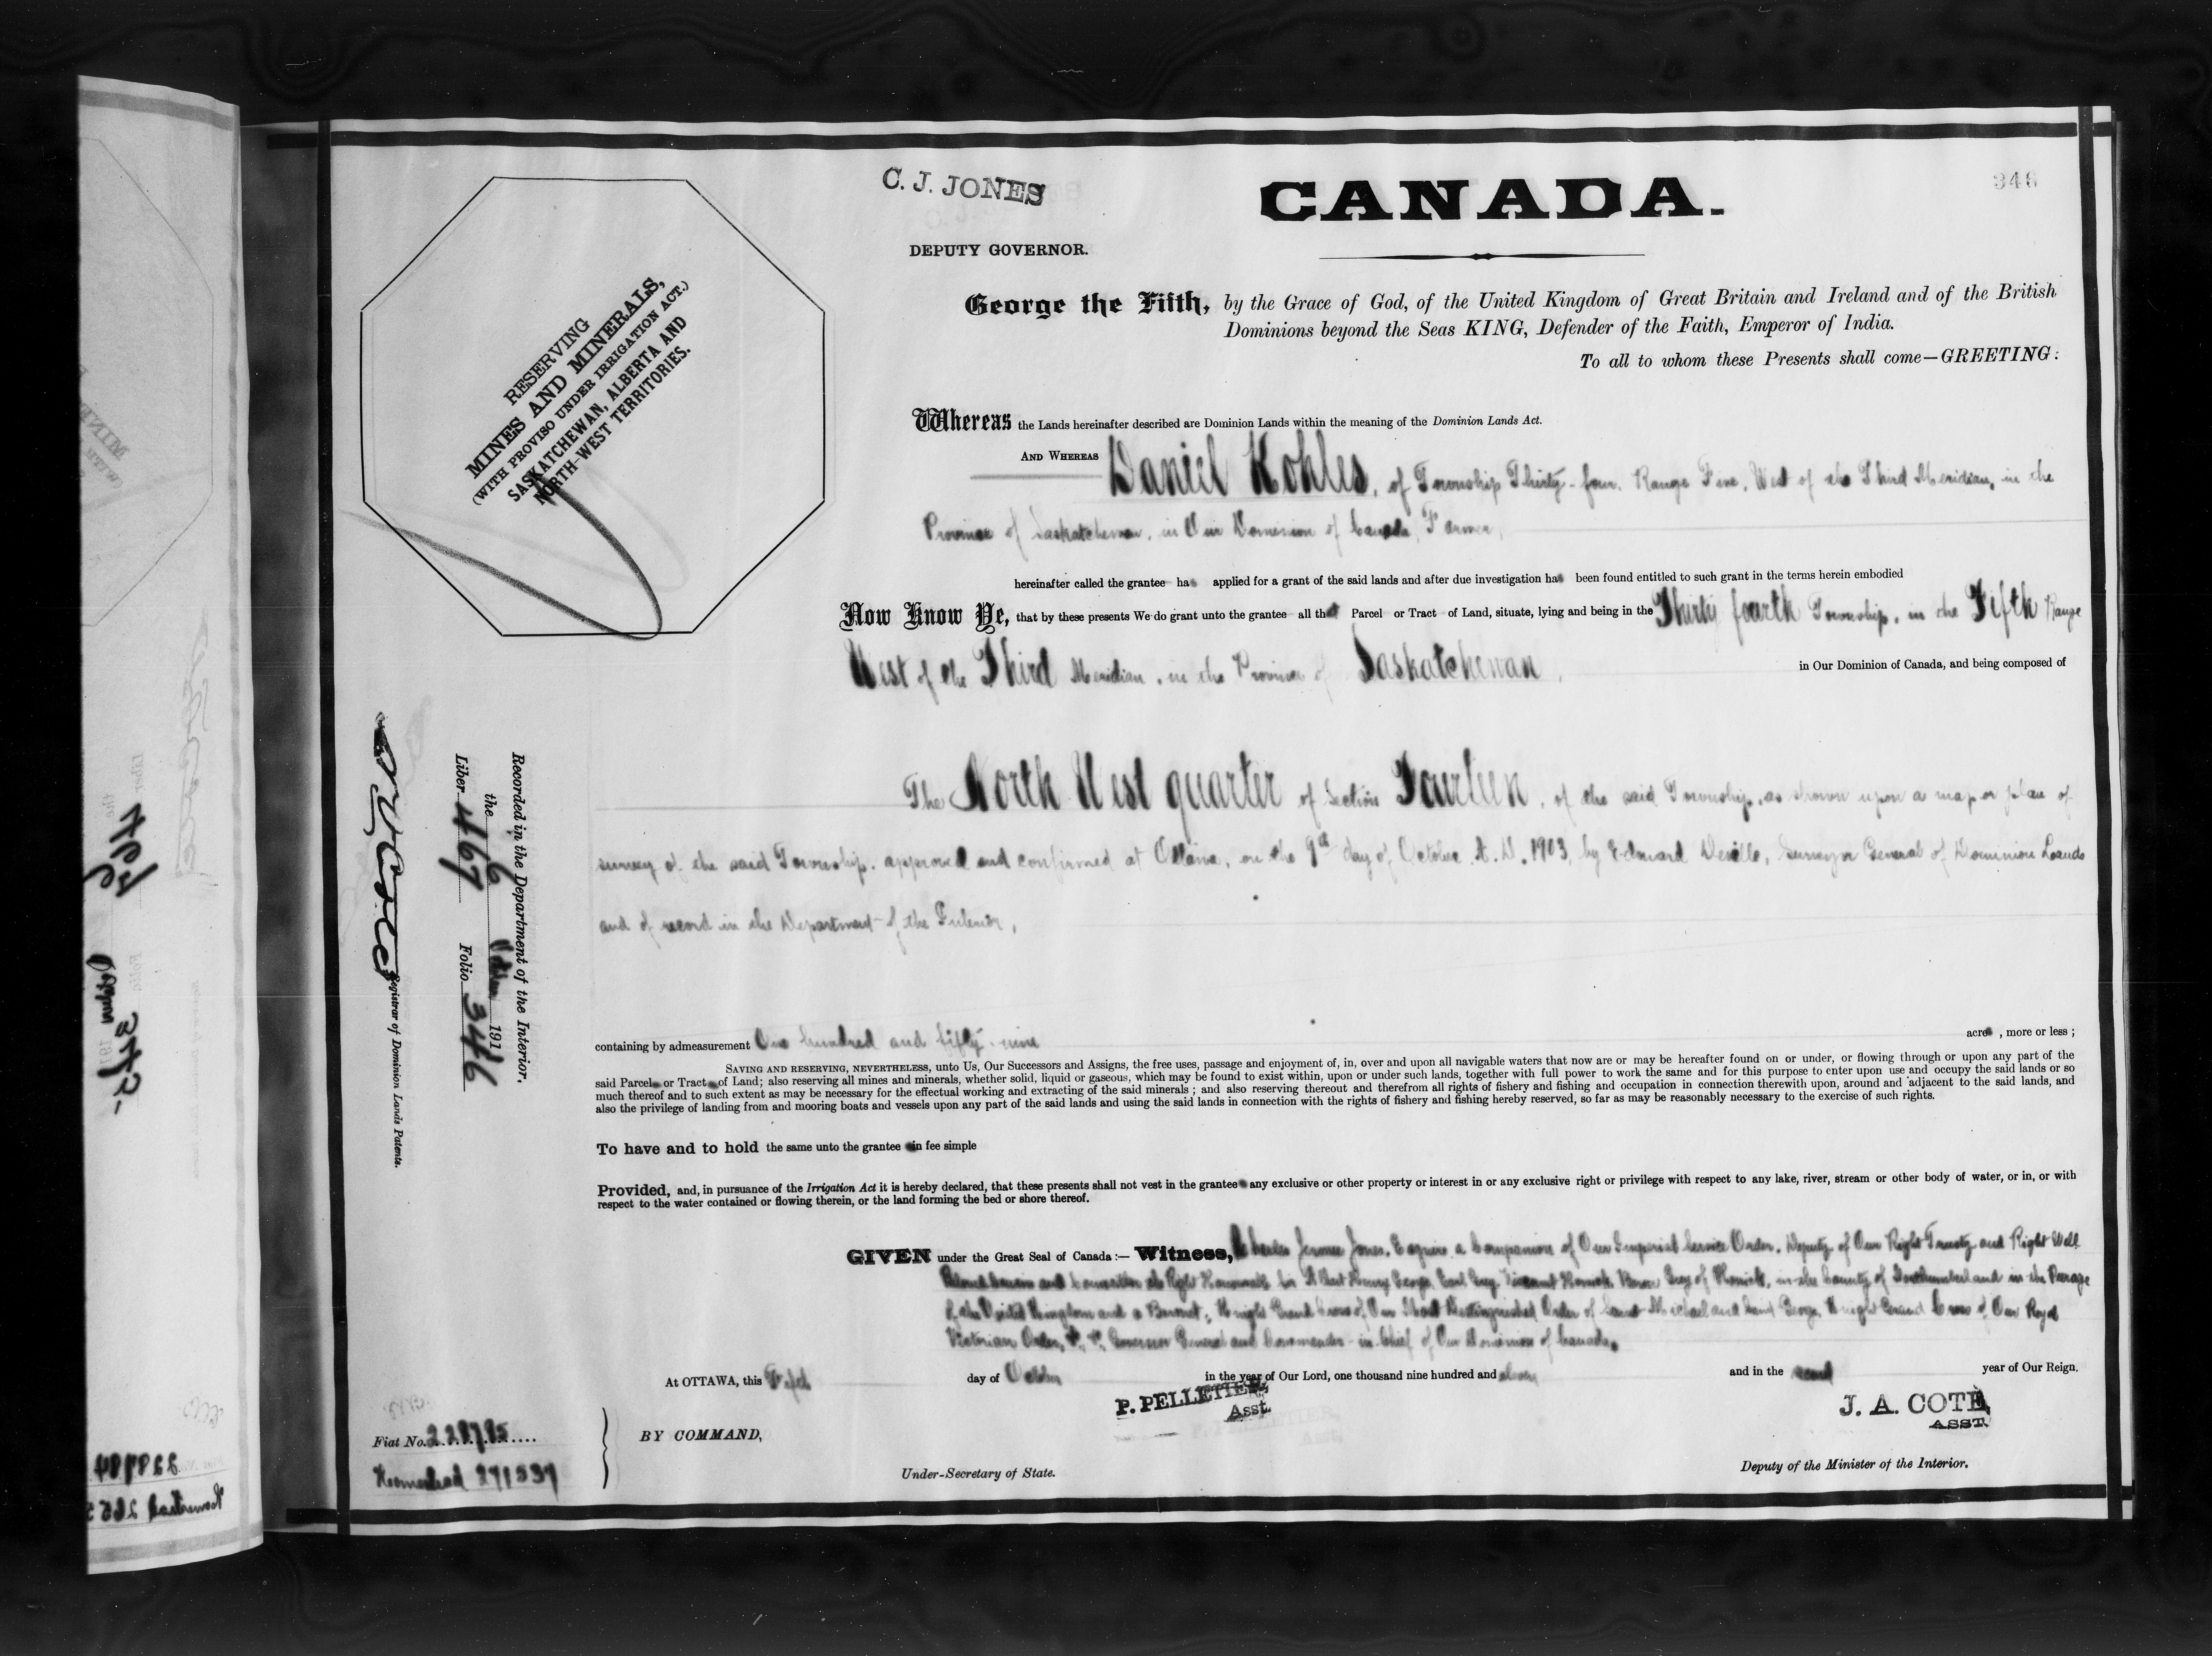 346
C. J. JONES
CANADA.
DEPUTY GOVERNOR.
George the Fifth, by the Grace of God, of the United Kingdom of Great Britain and Ireland and of the British
Dominions beyond the Seas KING, Defender of the Faith, Emperor of India.
To all to whom these Presents shall come—GREETING:
RESERVING
MINES AND MINERALS,
(WITH PROVISO UNDER IRRIGATION ACT.)
SASKATCHEWAN, ALBERTA AND
NORTH-WEST TERRITORIES.
Whereas the Lands hereinafter described are Dominion Lands within the meaning of the Dominion Lands Act.
AND WHEREAS Daniel Kohles, of Township Thirty-four, Range Five, West of the Third Meridian, in the
Province of Saskatchewan, in Our Dominion of Canada, Farmer,
hereinafter called the grantee has applied for a grant of the said lands and after due investigation has been found entitled to such grant in the terms herein embodied
Now Know Ye, that by these presents We do grant unto the grantee all that Parcel or Tract of Land, situate, lying and being in the Thirty fourth Township, in the Fifth Range
West of the Third Meridian, in the Province of Saskatchewan, in Our Dominion of Canada, and being composed of
The North West quarter of Section Fourteen, of the said Township, as shown upon a map or plan of
survey of the said Township, approved and confirmed at Ottawa, on the 9th day of October, A. D. 1903, by Edouard Deville, Surveyor General of Dominion Lands
and of record in the Department of the Interior,
containing by admeasurement One hundred and fifty-nine acres, more or less;
SAVING AND RESERVING, NEVERTHELESS, unto Us, Our Successors and Assigns, the free uses, passage and enjoyment of, in, over and upon all navigable waters that now are or may be hereafter found on or under, or flowing through or upon any part of the
said Parcel or Tract of Land; also reserving all mines and minerals, whether solid, liquid or gaseous, which may be found to exist within, upon or under such lands, together with full power to work the same and for this purpose to enter upon use and occupy the said lands or so
much thereof and to such extent as may be necessary for the effectual working and extracting of the said minerals; and also reserving thereout and therefrom all rights of fishery and fishing and occupation in connection therewith upon, around and adjacent to the said lands, and
also the privilege of landing from and mooring boats and vessels upon any part of the said lands and using the said lands in connection with the rights of fishery and fishing hereby reserved, so far as may be reasonably necessary to the exercise of such rights.
To have and to hold the same unto the grantee in fee simple
Provided, and, in pursuance of the Irrigation Act it is hereby declared, that these presents shall not vest in the grantee any exclusive or other property or interest in or any exclusive right or privilege with respect to any lake, river, stream or other body of water, or in, or with
respect to the water contained or flowing therein, or the land forming the bed or shore thereof.
GIVEN under the Great Seal of Canada:— Witness, Charles Jerome Jones, Esquire, a Companion of Our Imperial Service Order, Deputy of Our Right Trusty and Right Well
Beloved Cousin and Councillor the Right Honourable Sir Albert Henry George, Earl Grey, Viscount Howick, Baron Grey of Howick, in the County of Northumberland in the Peerage
of the United Kingdom and a Baronet; Knight Grand Cross of Our Most Distinguished Order of Saint Michael and Saint George, Knight Grand Cross of Our Royal
Victorian Order, Governor General and Commander-in-Chief of Our Dominion of Canada.
At OTTAWA, this day of October in the year of Our Lord, one thousand nine hundred and eleven and in the second year of Our Reign.
P. PELLETIER,
Asst.
J. A. COTE,
ASST.
BY COMMAND,
Under-Secretary of State.
Deputy of the Minister of the Interior.
Fiat No. 228785
Homestead 291539
Recorded in the Department of the Interior.
the 6 October 191
Liber 467 Folio 346
Registrar of Dominion Lands Patents.